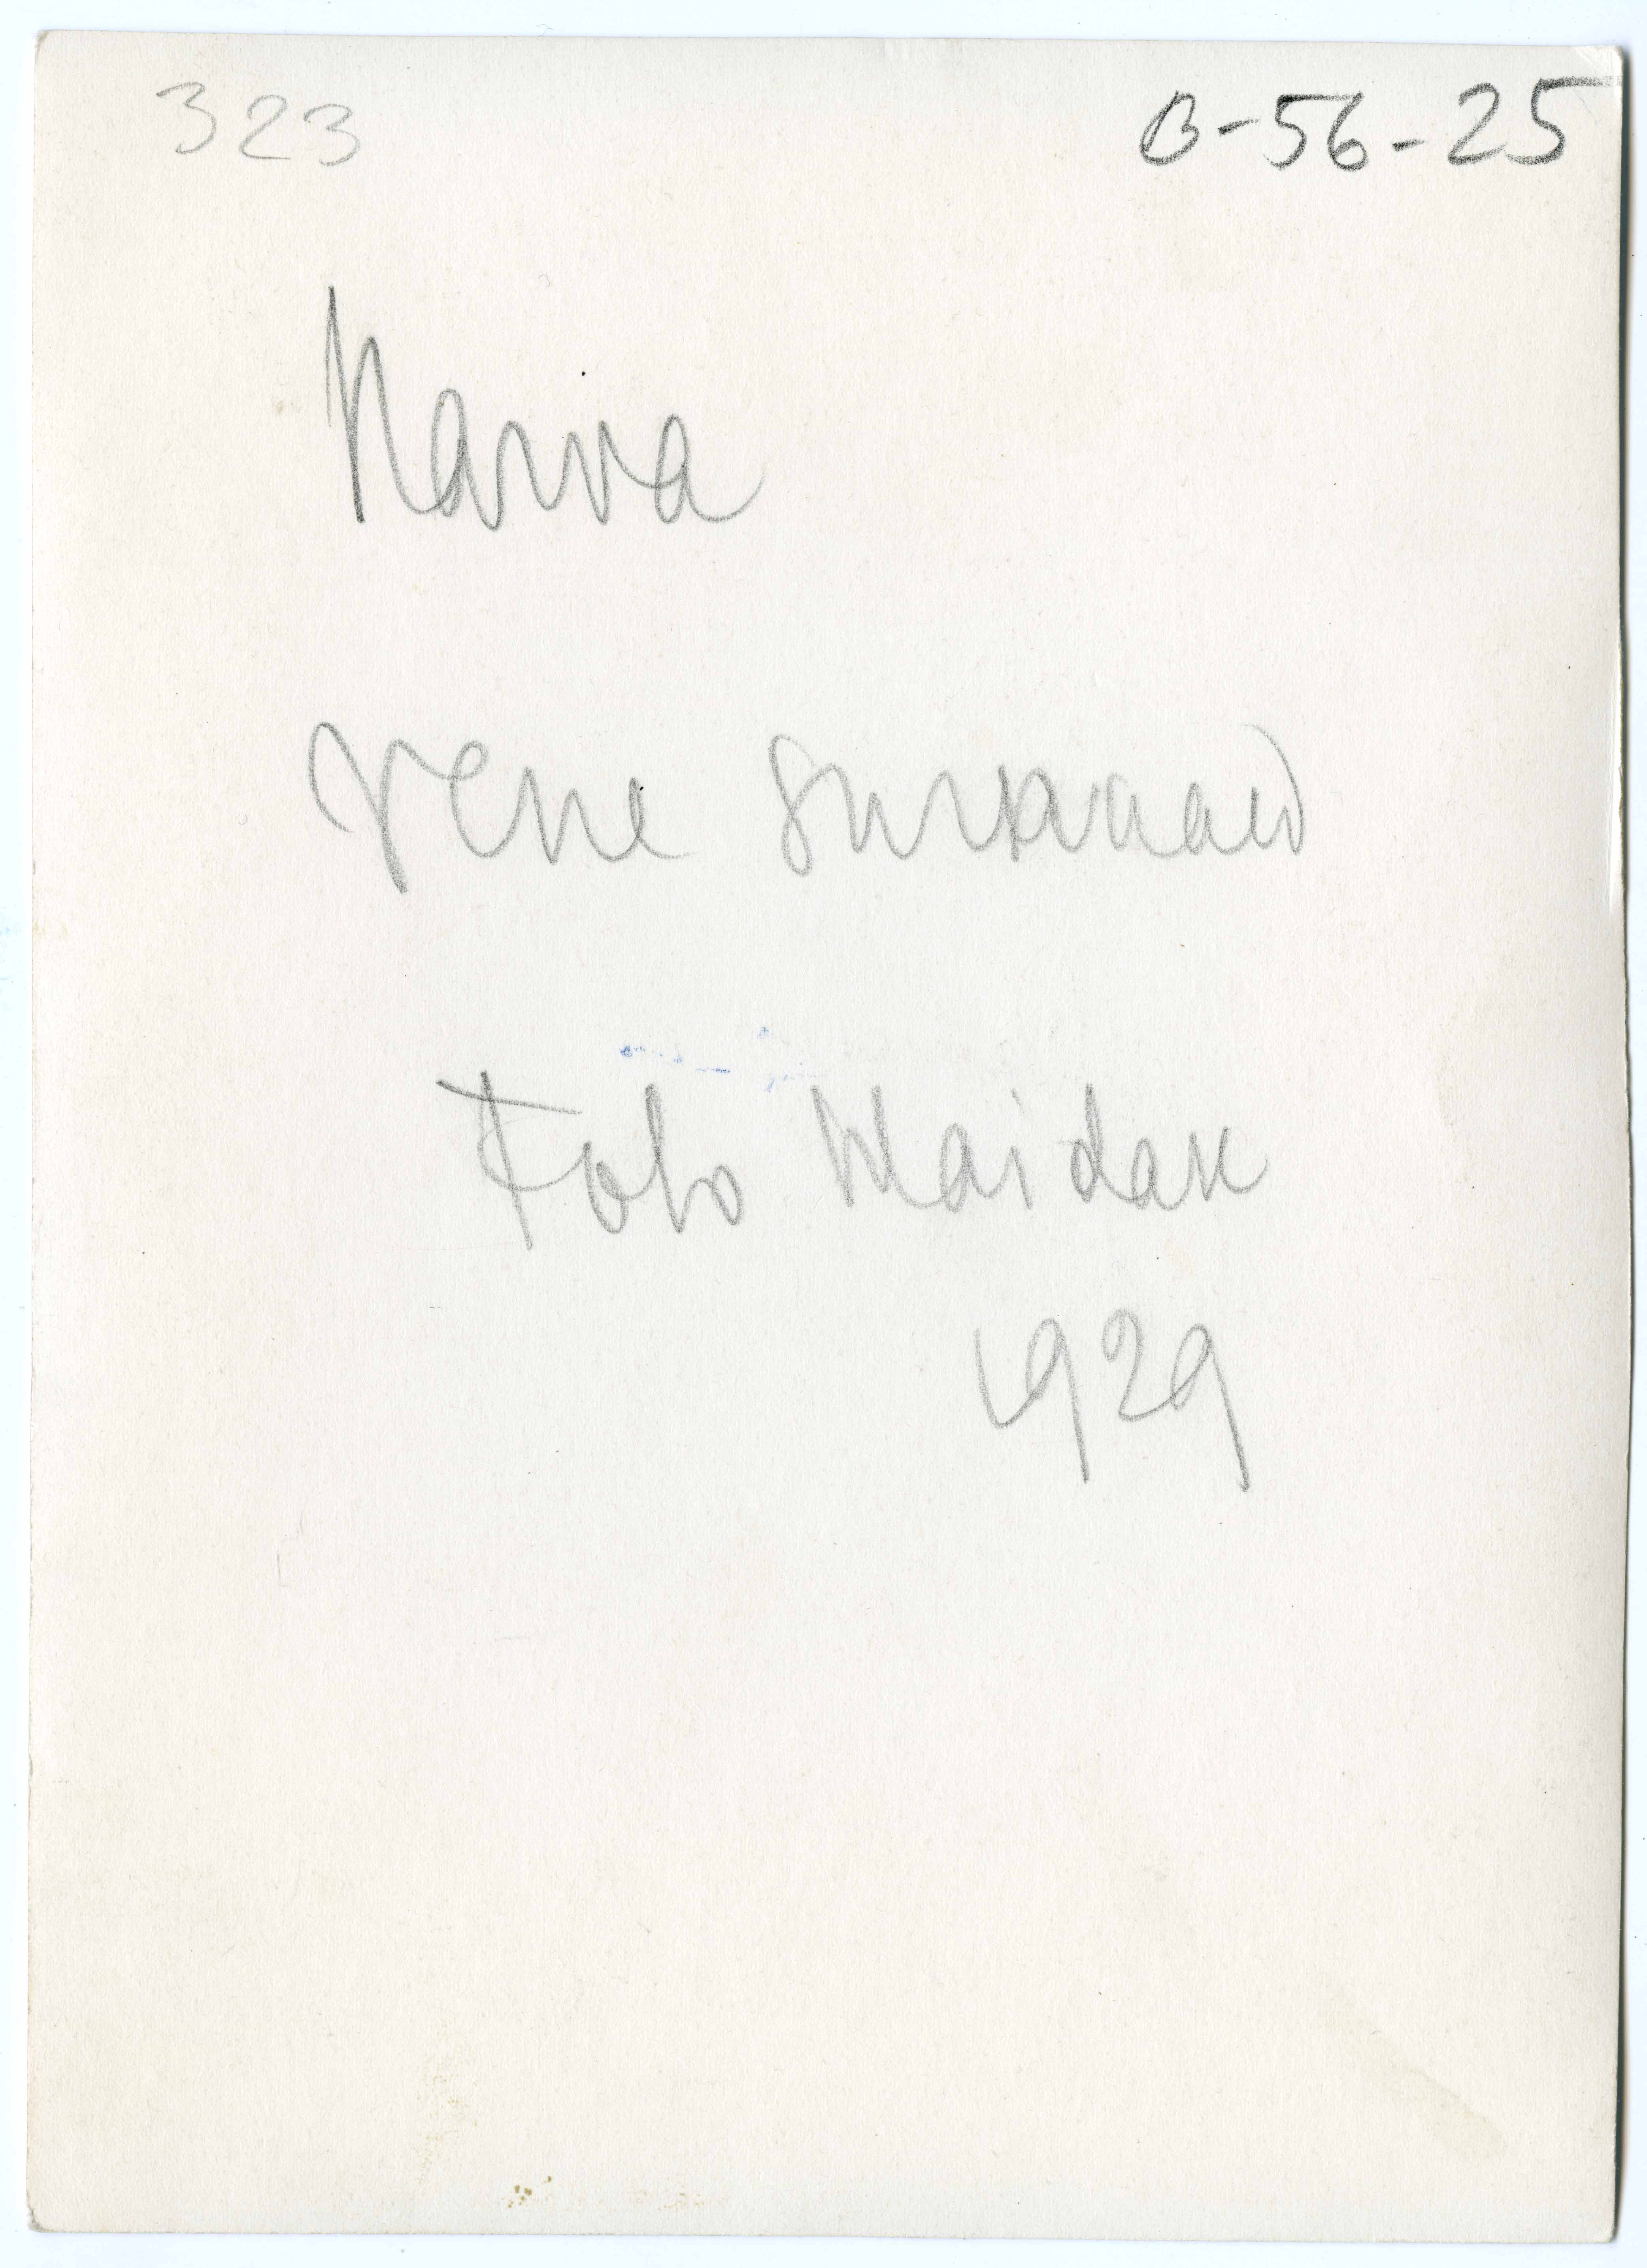 323 B-56-25
Narva
Vene surnuaed
Foto Maidak
1929